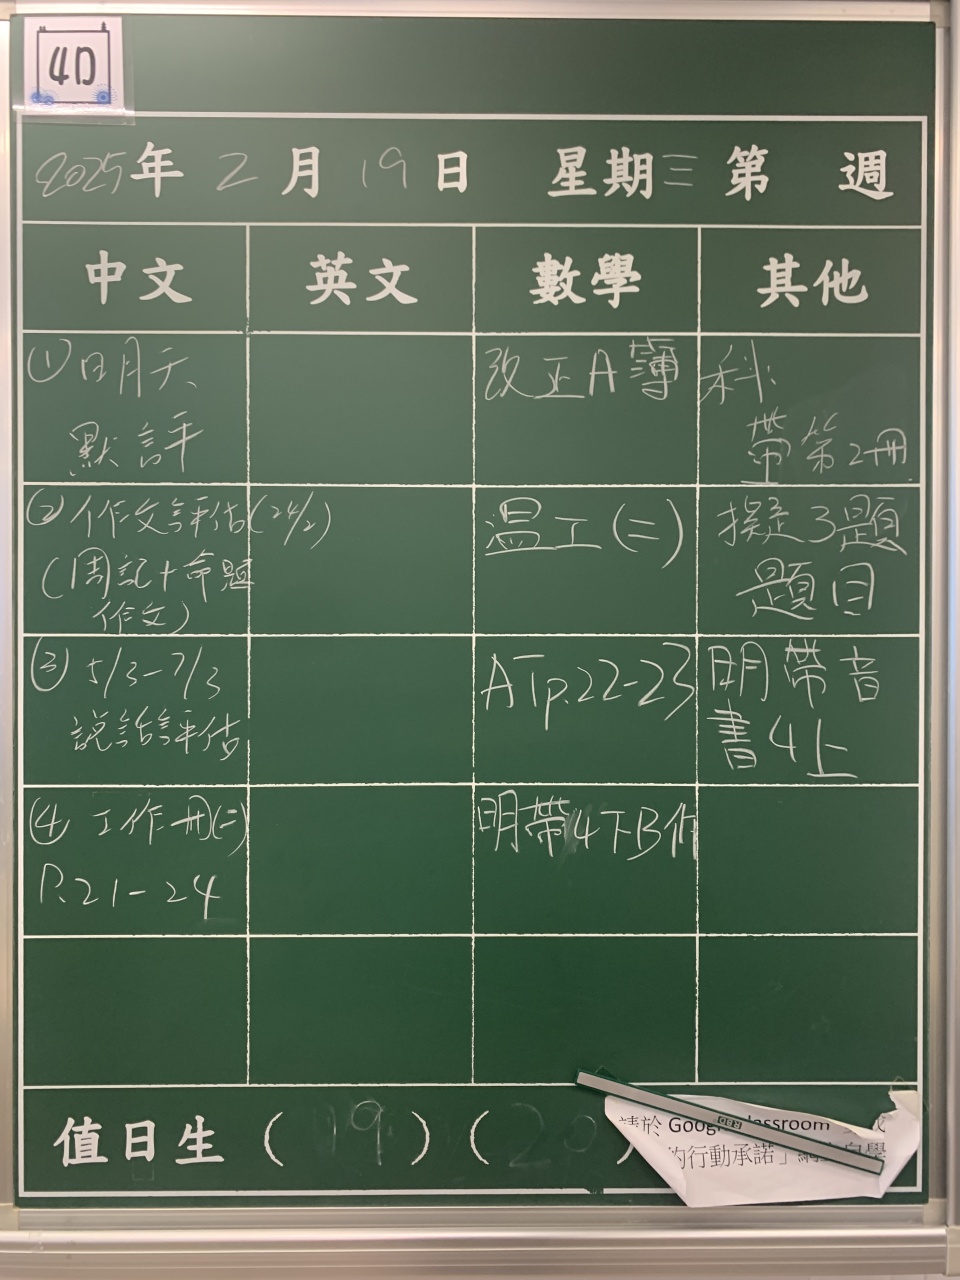 4D
2025年 2月 19日 星期三 第 週
中文 英文 數學 其他
① 日月天
默評
② 作文評估(24/2)
(周記+命題
作文)
③ 5/3-7/3
說話評估
④ 工作冊(二)
P.21-24
改正A簿
温工(二)
AT p.22-23
明帶4下B作
科:
帶第2冊
擬3題
題目
明帶音
書4上
值日生 (19)(20)
請於 Google Classroom
的行動承諾」